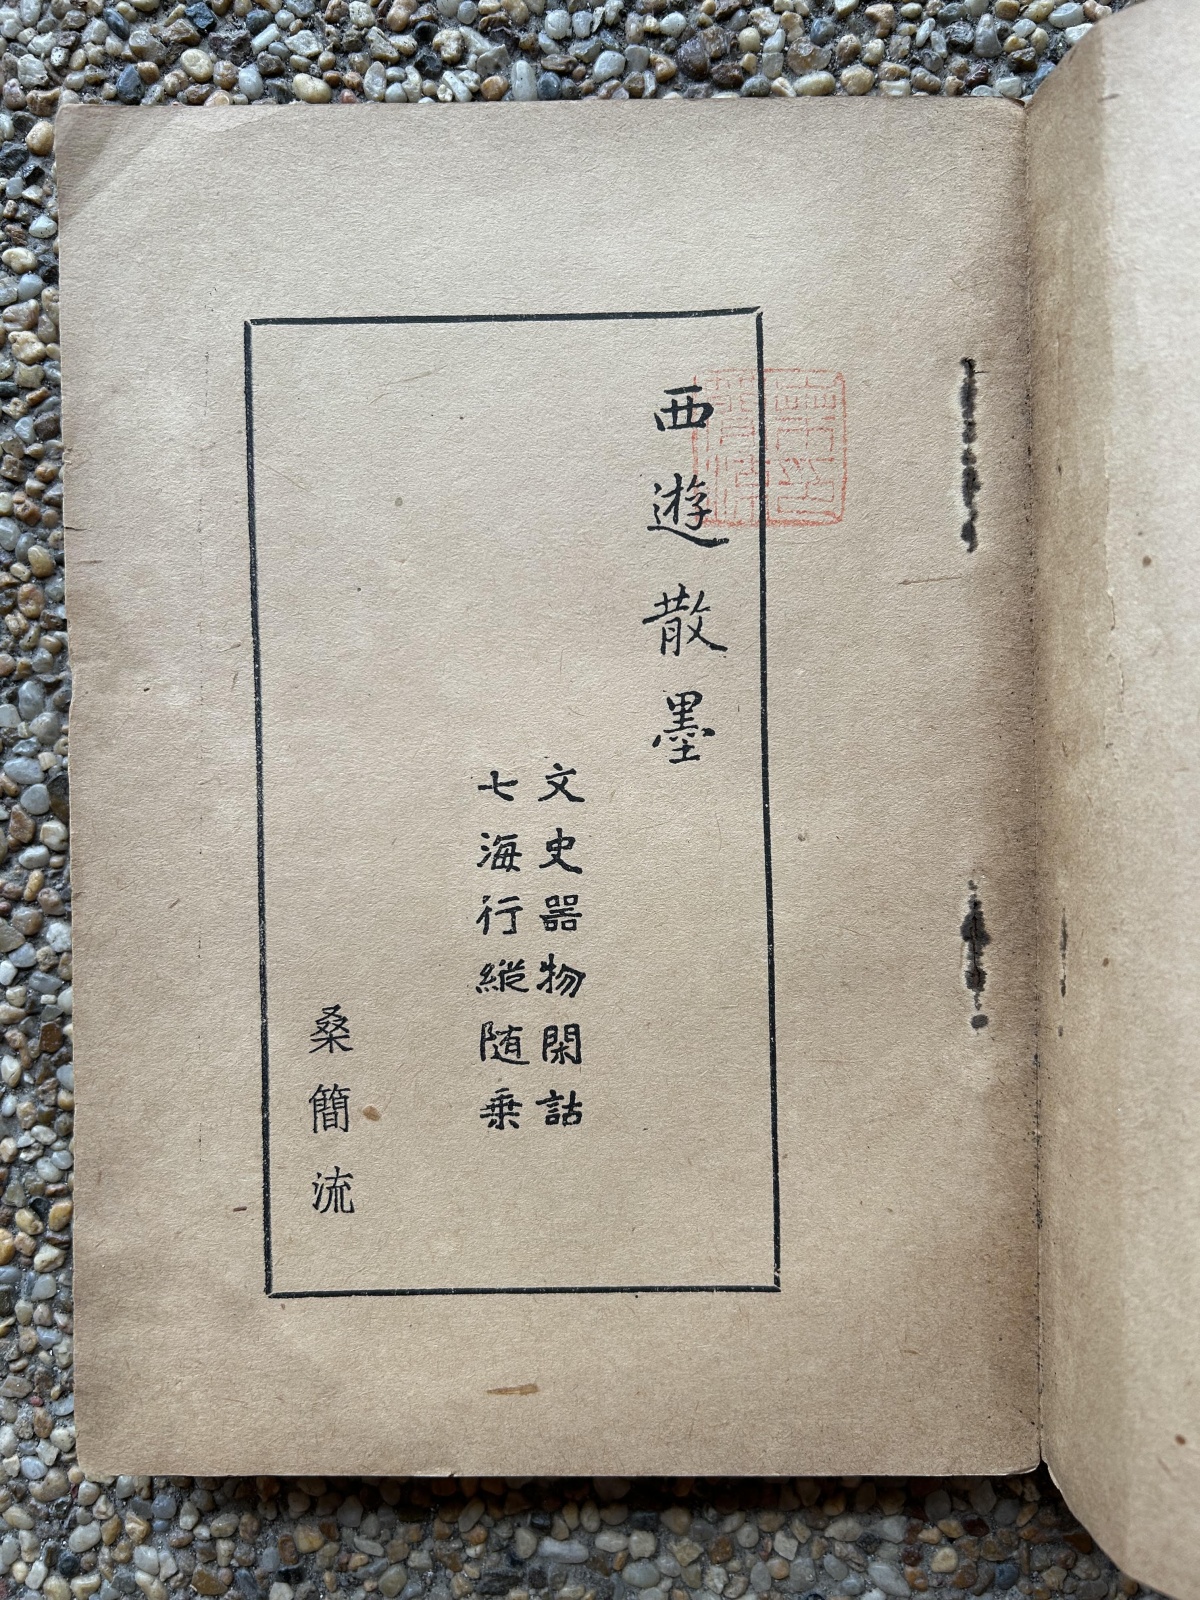 西遊散墨
文史器物閑詁
七海行縱随乗
桑簡流